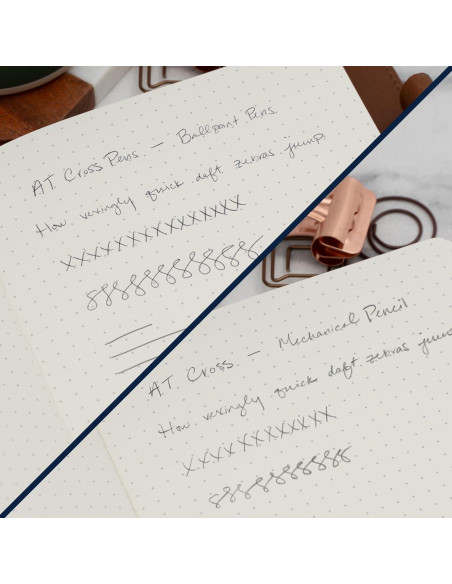 A.T. Cross Pens — Ballpoint Pens.
How vexingly quick daft zebras jump.
XXXXXXXXXXXXXXX
888888888888
A.T. Cross — Mechanical Pencil
How vexingly quick daft zebras jump
XXXXXXXXXXXX
88888888888